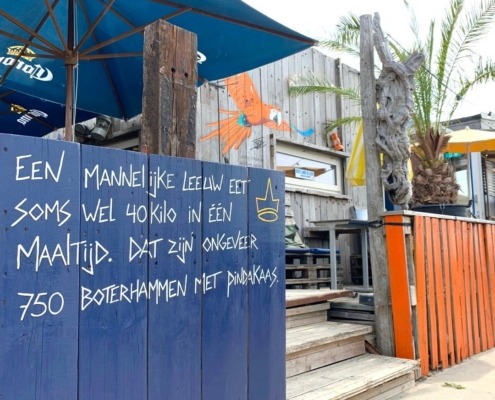 Corona
EEN MANNELIJKE LEEUW EET
SOMS WEL 40 KILO IN ÉÉN
MAALTIJD. DAT ZIJN ONGEVEER
750 BOTERHAMMEN MET PINDAKAAS.